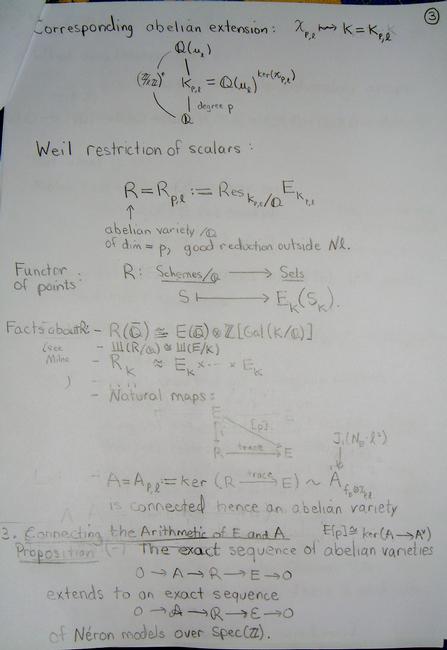 ③
Corresponding abelian extension: χ_{p,ℓ} ⇝ K = K_{p,ℓ}
Q(μ_ℓ)
K_{p,ℓ} = Q(μ_ℓ)^{ker(χ_{p,ℓ})}
degree p
Q
Weil restriction of scalars:
R = R_{p,ℓ} := Res_{K_{p,ℓ}/Q} E_{K_{p,ℓ}}
↑
abelian variety /Q
of dim = p, good reduction outside Nℓ.
Functor of points: R: Schemes/Q → Sets
S ↦ E_K(S_K).
Facts about R: – R(Q̄) ≅ E(Q̄) ⊗ Z[Gal(K/Q)]
(see Milne) – Ш(R/Q) ≅ Ш(E/K)
– R_K ≈ E_K × ··· × E_K
– Natural maps:
E
[p]
R → trace → E
J_1(N_E·ℓ²)
↓
A = A_{p,ℓ} := ker (R → trace → E) ~ A_{f_E⊗χ_{p,ℓ}}
is connected hence an abelian variety
3. Connecting the Arithmetic of E and A E[p] ≅ ker(A → A^∨)
Proposition (–) The exact sequence of abelian varieties
0 → A → R → E → 0
extends to an exact sequence
0 → A → R → E → 0
of Néron models over Spec(Z).